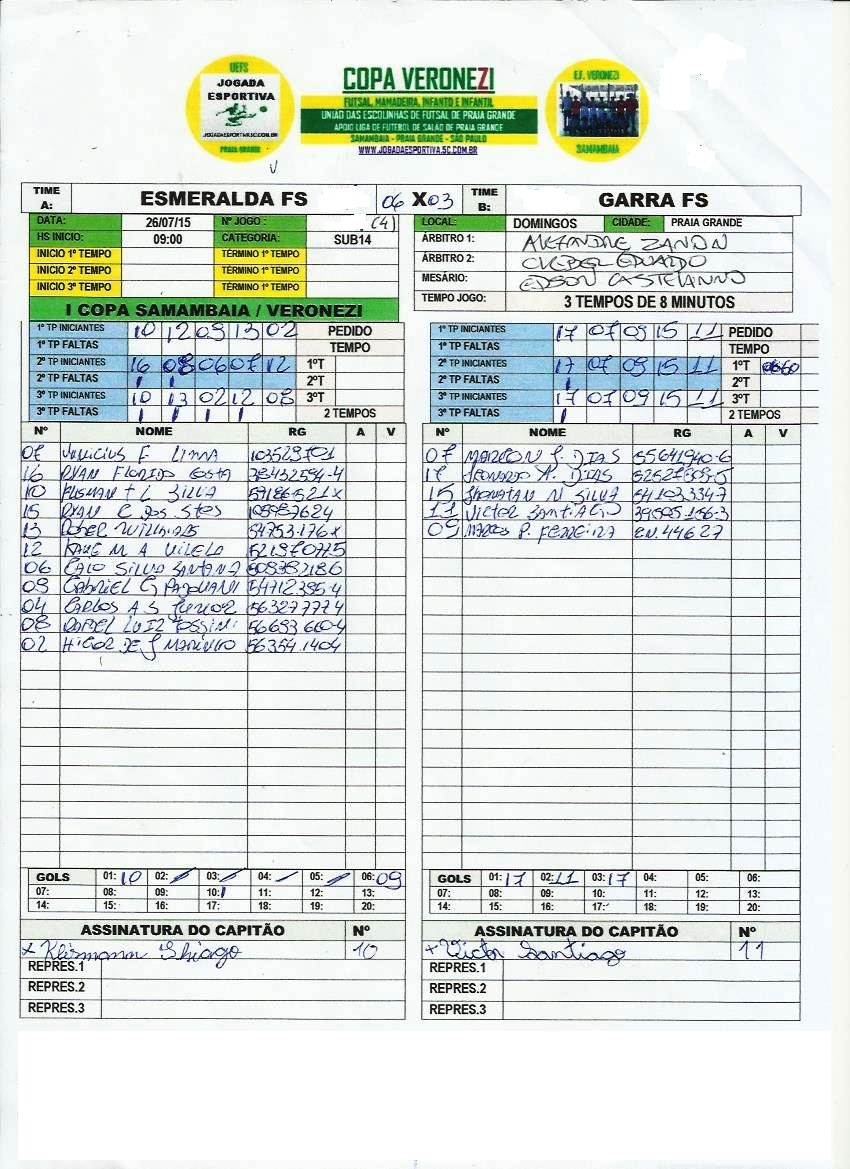 UEFS
JOGADA
ESPORTIVA
JOGADAESPORTIVA.SC.COM.BR
PRAIA GRANDE
COPA VERONEZI
FUTSAL, MAMADEIRA, INFANTO E INFANTIL
UNIÃO DAS ESCOLINHAS DE FUTSAL DE PRAIA GRANDE
APOIO LIGA DE FUTEBOL DE SALÃO DE PRAIA GRANDE
SAMAMBAIA - PRAIA GRANDE - SÃO PAULO
WWW.JOGADAESPORTIVA.SC.COM.BR
E.F. VERONEZI
SAMAMBAIA
TIME A: ESMERALDA FS 06 X 03 TIME B: GARRA FS
DATA: 26/07/15 Nº JOGO : (4) LOCAL: DOMINGOS CIDADE: PRAIA GRANDE
HS INICIO: 09:00 CATEGORIA: SUB14
ÁRBITRO 1: ALEXANDRE ZANON
INICIO 1º TEMPO TÉRMINO 1º TEMPO
ÁRBITRO 2: CLEBER EDUARDO
INICIO 2º TEMPO TÉRMINO 1º TEMPO
MESÁRIO: EDSON CASTELANNO
INICIO 3º TEMPO TÉRMINO 1º TEMPO
TEMPO JOGO: 3 TEMPOS DE 8 MINUTOS
I COPA SAMAMBAIA / VERONEZI
1º TP INICIANTES 10 12 09 13 02 PEDIDO
1º TP FALTAS TEMPO
2º TP INICIANTES 16 08 06 07 12 1ºT
2º TP FALTAS 2ºT
3º TP INICIANTES 10 13 02 12 08 3ºT
3º TP FALTAS 2 TEMPOS
1º TP INICIANTES 17 07 09 15 11 PEDIDO
1º TP FALTAS TEMPO
2º TP INICIANTES 17 07 09 15 11 1ºT
2º TP FALTAS 2ºT
3º TP INICIANTES 17 07 09 15 11 3ºT
3º TP FALTAS 2 TEMPOS
Nº NOME RG A V
07 VINICIUS F LIMA
16 RYAN FLORIDO COSTA 38432594-4
10 T L SILVA 59186521X
15 RYAN C DOS STOS
13 WILLIAN 54753176X
12 KAUE M A VILELA
06 CAIO SILVA SANTANA
09 GABRIEL G 54712395-4
04 CARLOS A S JUNIOR 563277774
08 RAFAEL LUIZ 56693660-4
02 HIGOR DE J MARINHO 56354.1404
Nº NOME RG A V
07 MARLON S. DIAS 55641940-6
17 LEONARDO A. DIAS
15 JHONATAN N SILVA 54103334-7
11 VICTOR SANTIAGO
09 MARCOS P. FERREIRA CN.44627
GOLS 01: 10 02: 03: 04: 05: 06: 09
07: 08: 09: 10: 11: 12: 13:
14: 15: 16: 17: 18: 19: 20:
GOLS 01: 17 02: 11 03: 17 04: 05: 06:
07: 08: 09: 10: 11: 12: 13:
14: 15: 16: 17: 18: 19: 20:
ASSINATURA DO CAPITÃO Nº
x Klismann Thiago 10
REPRES.1
REPRES.2
REPRES.3
ASSINATURA DO CAPITÃO Nº
x Victor Santiago 11
REPRES.1
REPRES.2
REPRES.3